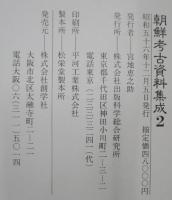 朝鮮考古資料集成 2
昭和五十六年十二月五日発行 揃定価四八〇〇〇円
発行者――宮地恵之助
発行所――株式会社出版科学総合研究所
東京都千代田区神田小川町二―三―二
電話東京(二三三)三三四一(代)
印刷所――平河工業株式会社
製本所――松栄堂製本所
発売元――株式会社創学社
大阪市北区太融寺町二―二一
電話大阪〇六(三一二)五〇一四